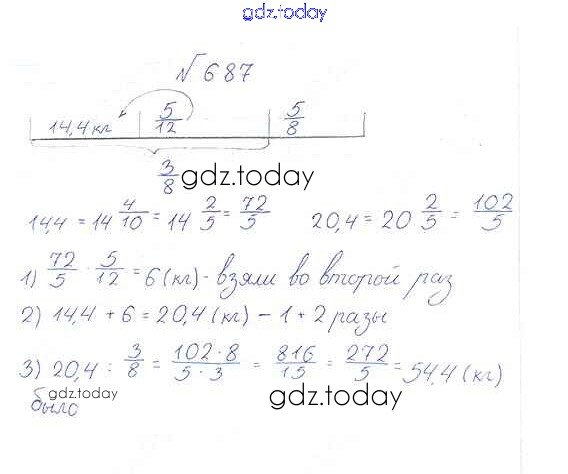 gdz.today
№687
14,4 кг 5/12 5/8
3/8 gdz.today
14,4 = 14 4/10 = 14 2/5 = 72/5 20,4 = 20 2/5 = 102/5
1) 72/5 · 5/12 = 6 (кг) - взяли во второй раз
2) 14,4 + 6 = 20,4 (кг) - 1 + 2 разы
3) 20,4 : 3/8 = 102·8/5·3 = 816/15 = 272/5 = 54,4 (кг)
было
gdz.today gdz.today